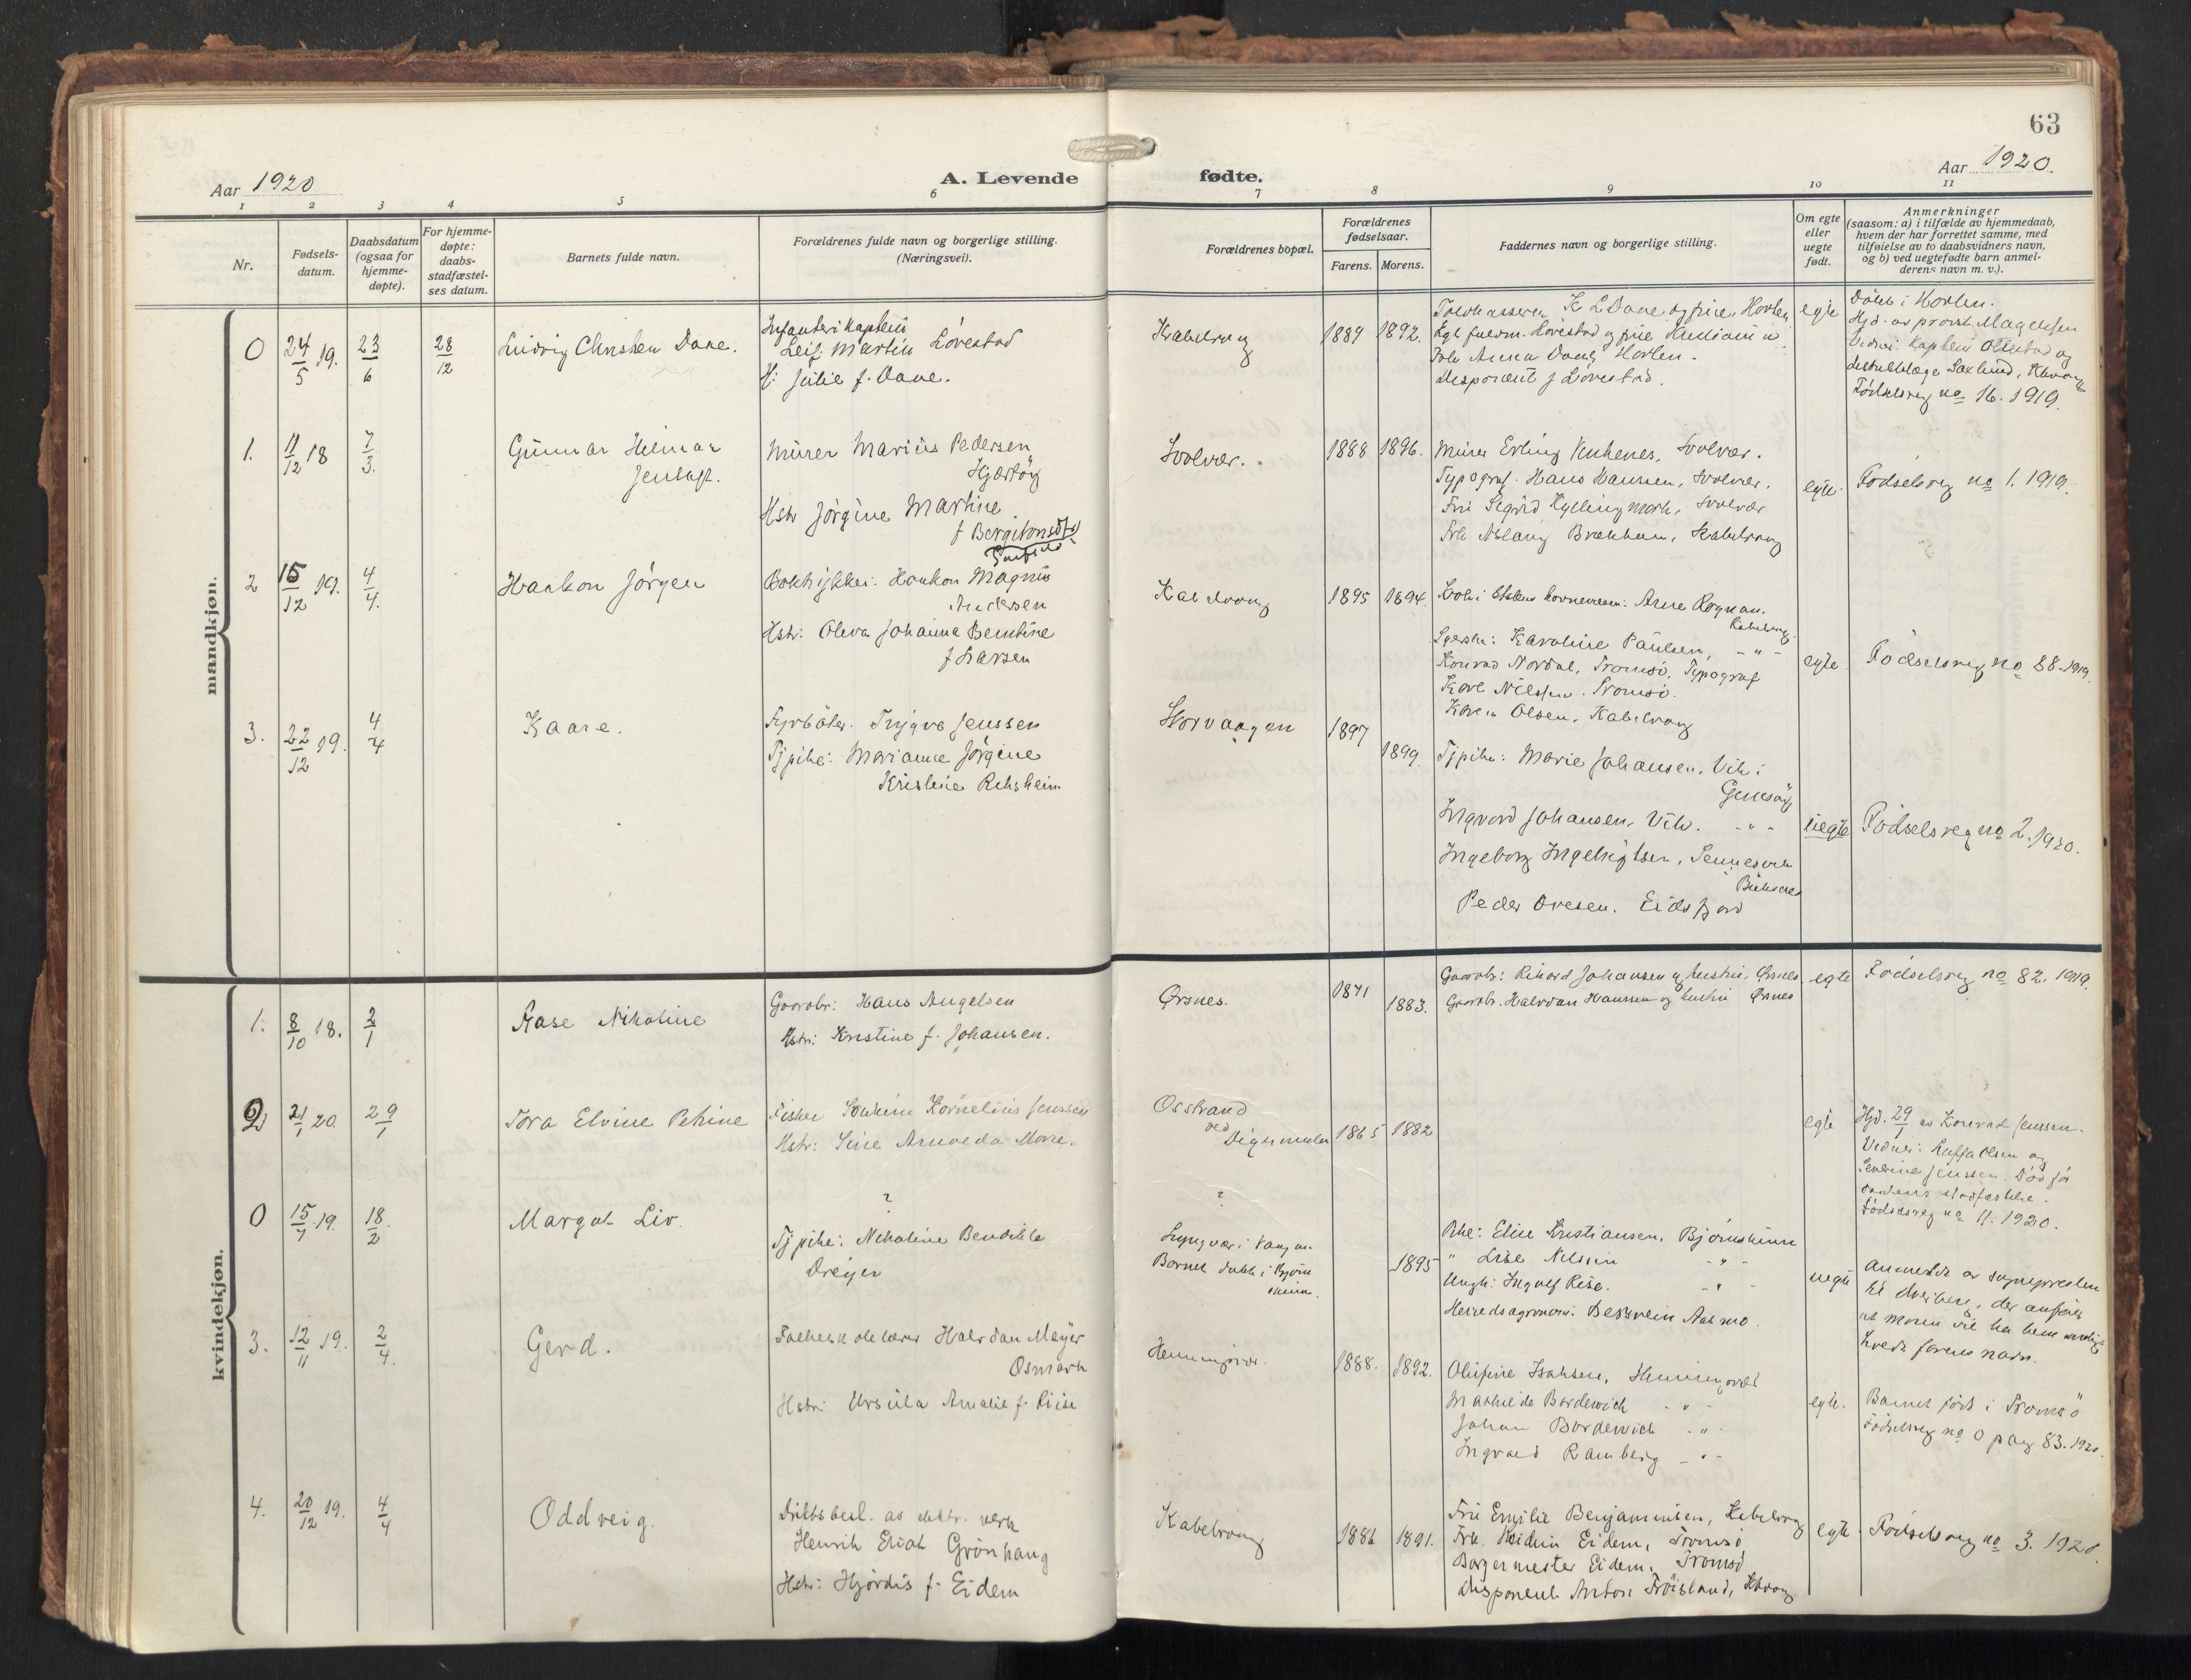 63
Aar 1920
A. Levende fødte.
Aar 1920.
1 2 3 4 5 6 7 8 9 10 11
Nr.
Fødsels-
datum.
Daabsdatum
(ogsaa for
hjemme-
døpte).
For hjemme-
døpte:
daabs-
stadfæstel-
ses datum.
Barnets fulde navn.
Forældrenes fulde navn og borgerlige stilling.
(Næringsvei).
Forældrenes bopæl.
Forældrenes
fødselsaar.
Farens. Morens.
Faddernes navn og borgerlige stilling.
Om egte
eller
uegte
født.
Anmerkninger
(saasom: a) i tilfælde av hjemmedaab,
hvem der har forrettet samme, med
tilføielse av to daabsvidners navn,
og b) ved uegtefødte barn anmel-
derens navn m. v.).
mandkjøn.
0 24/5 19. 23/6 28/12 Ludvig Christian Dane.
Infanterikaptein
Leif Martin Lövestad
H: Julie f. Dane.
Kabelvaag 1889 1892.
Dane og frue, Horten
Anna Dane, Horten.
Disponent J Lövestad.
egte
Döbt i Horten.
Hjd. av provst Magelssen
Vidner: Kaptein og
Födselsreg no 16. 1919.
1. 11/12 18 7/3. Gunnar Hilmar
Jentoft.
Murer Marius Pedersen
Hstr Jörgine Martine
Svolvær. 1888 1896.
Murer Erling Svolvær.
Typograf. Hans Hanssen, Svolvær.
Fru Sigrid Kyllingmark, Svolvær
Frk Aslaug Brekken, Kabelvaag
egte.
Födselsreg no 1. 1919.
2 15/12 19. 4/4. Haakon Jörgen
Boktrykker: Haakon Magnus
Andersen
Hstr: Oleva Johanna Berntine
f Larsen
Kabelvaag 1895 1894.
Arne Rognan.
Kabelvaag.
Karoline Paulsen, - " -
Konrad Nordal, Tromsö, Typograf
Kare Nilssen. Tromsö.
Karen Olsen, Kabelvaag
egte
Födselsreg no 88. 1919.
3. 22/12 19. 4/4 Kaare.
Fyrböter. Trygve Jenssen
Tjpike: Marianne Jörgine
Kristine Reksheim
Storvaagen 1897
1899.
Tjpike: Marie Johansen. Vik i
Gimsöy
Ingvard Johansen, Vik. - " -
Ingeborg Ingebrigtsen, Sennesvik
Buksnes
Peder Ovesen. Eidsfjord
uegte
Födselsreg no 2. 1920.
kvindekjøn.
1. 8/10 18. 2/1 Aase Nikoline
Gaardbr: Hans Angelsen
Hstr: Kristine f. Johansen.
Ørsnes. 1871
1883.
Gaardbr: Rikard Johansen og hustru, Ørsnes
Gaardbr. Halvdan Hanssen og hustru Ørsnes
egte
Födselsreg no 82. 1919.
2 21/1 20. 29/1 Tora Elvine Petrine
Fisker Kornelius Jenssen
Hstr: Sine Arneda More.
Osstrand
ved
Digermulen 1865 1882
egte
Hjd. 29/1 av Konrad Jenssen.
Vidner: Olsen og
Severine Jenssen. Död för
daabens stadfæstelse.
Födselsreg no 11. 1920.
0 15/7 19. 18/2. Margot Liv.
?
Tjpike: Nikoline Bendikte
Dreyer
?
Lyngvær i Vaagan.
Barnet födt i Bjorn
skinn.
1895
Pike: Elise Kristiansen, Bjornskinn
" Lise Nilssen - " -
Ungk: Ingolf Riise. - " -
Herredsagronom. Aasmo.
uegte
Anmeldt av sogneprest
at moren vil ha hem
faren navn.
3. 12/11 19. 2/4. Gerd.
Folkeskolelærer Halvdan Meyer
Osmark
Hstr: Ursula Amalie f. Riise
Henningsvær. 1888. 1892.
Olufine Isaksen, Henningsvær
Mathilde Bordewich - " -
Johan Bordewich - " -
Ingvald Ramberg - " -
egte.
Barnet födt i Tromsö
Födselsreg no 0 pag 83. 1920.
4. 20/12 19. 4/4 Oddveig.
Driftsbest. av elektr. verk
Henrik Eliat Grönhaug
Hstr: Hjördis f. Eidem
Kabelvaag 1886 1891.
Fru Emilie Benjaminsen, Kabelvaag
Frk. Reidun Eidem, Tromsö
Borgermester Eidem, Tromsö
Disponent Anton Fröisland, Kbvaag
egte
Födselsreg no 3. 1920.